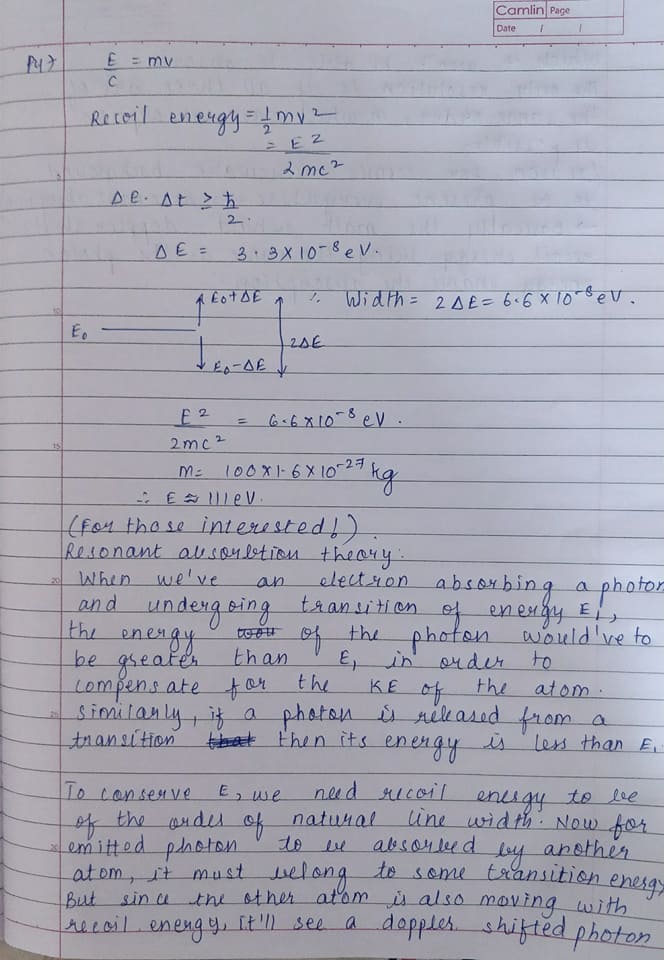 Camlin Page
Date / /
E/C = mv
Recoil energy = 1/2 mv²
= E²/2mc²
Δe. Δt ≥ ħ/2.
ΔE = 3.3×10-⁸eV.
E₀+ΔE ∴ Width = 2ΔE = 6.6×10-⁸eV.
E₀
2ΔE
E₀-ΔE
E²/2mc² = 6.6×10-⁸eV.
m= 100×1.6×10-²⁷ kg
∴ E ≈ 111eV.
(For those interested!)
Resonant absorbtion theory:
When we've an electron absorbing a photon
and undergoing transition of energy E₁,
the energy of the photon would've to
be greater than E, in order to
compensate for the KE of the atom.
Similarly, if a photon is released from a
transition that then its energy is less than E,
To conserve E, we need recoil energy to be
of the order of natural line width. Now for
emitted photon to be absorbed by another
atom, it must belong to some transition energy
But since the other atom is also moving with
recoil energy, it'll see a doppler shifted photon